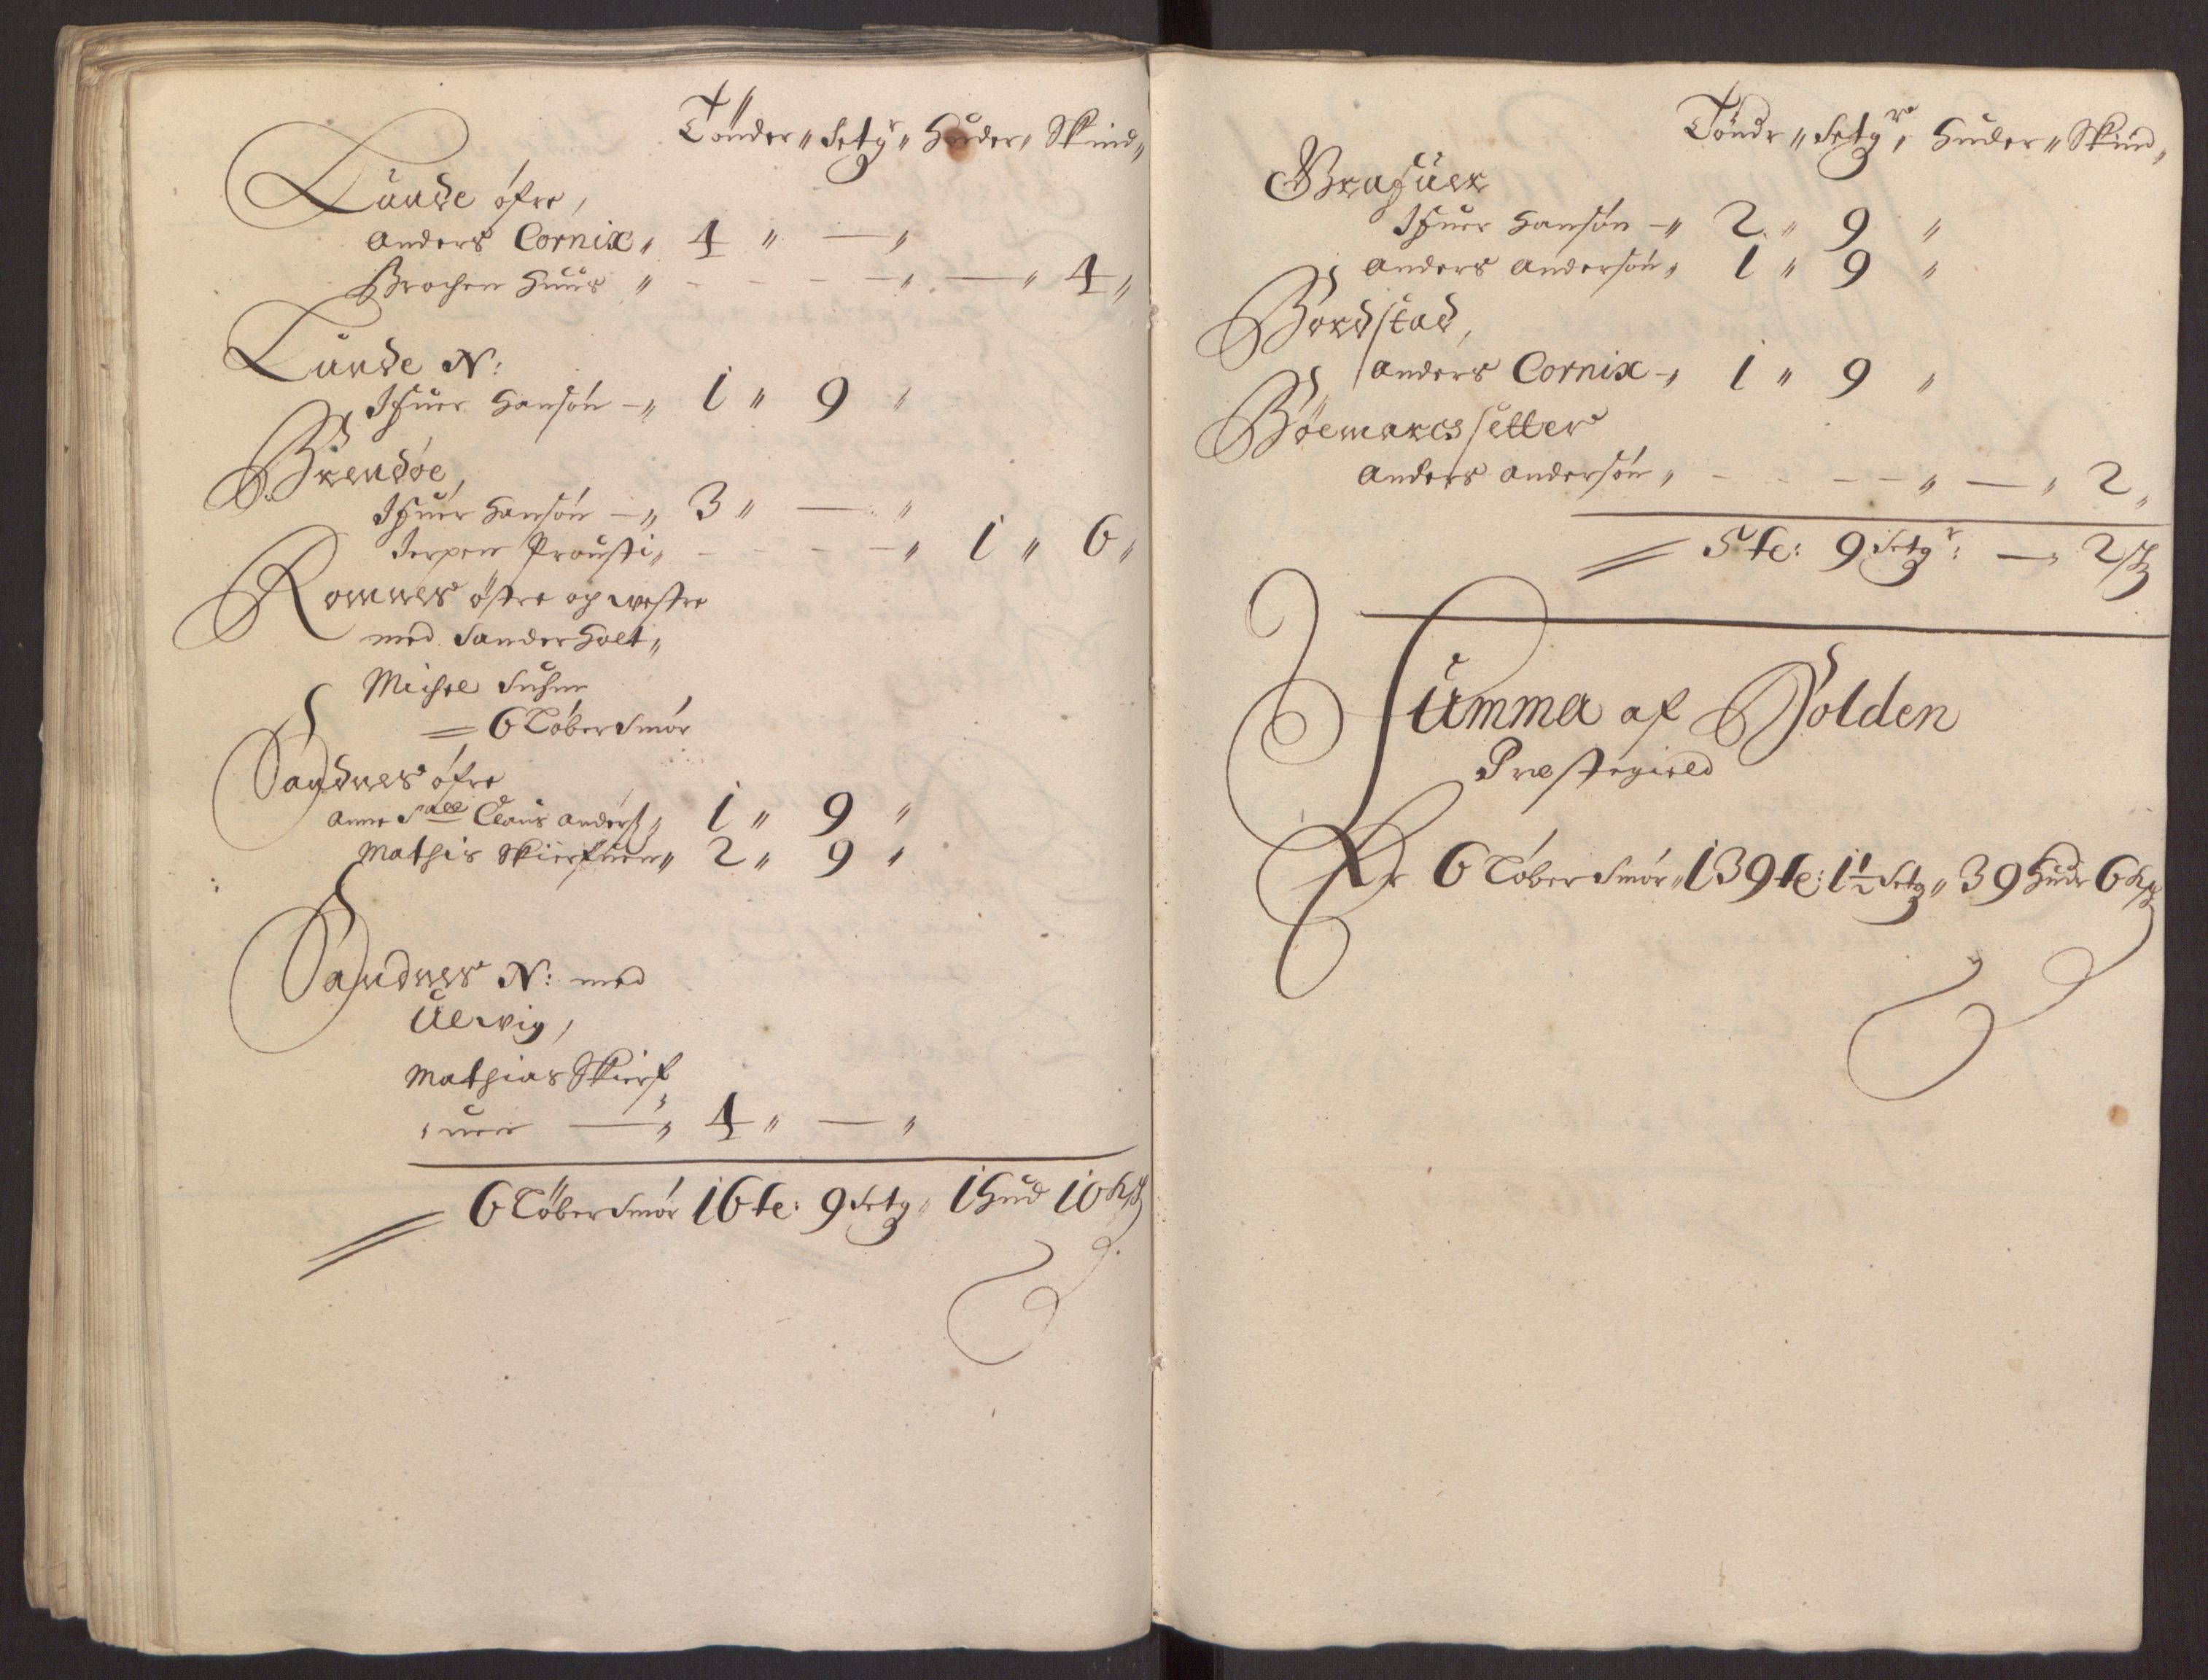 Tönder „ Setg^r „ Huder „ Skind „
Lunde öfre,
Anders Cornix „ 4 „ — „
Brochen Huus „ - - - — „ — „ 4 „
Lunde N:
Ifuer Hansön — „ 1 „ 9 „
Brendöe,
Ifuer Hansön — „ 3 „ — „
Jerpen Prousti „ - - - - „ 1 „ 6 „
Romnes östre og westre
med Sanderholt „
Michel Suhm
= 6 Töber Smör
Sandnes öfre
Anne S^all Claus Anders „ 1 „ 9 „
Mathis Skierfuen „ 2 „ 9 „
Sandnes N: med
Ulvig,
Mathias Skierf
uen — „ 4 „ — „
6 Töber Smör 16 te: 9 Setg „ 1 Hud 10 ksk
Töndr „ Setg^r „ Huder „ Skind „
Grafuer
Ifuer Hansön — „ 2 „ 9 „
Anders Andersön „ 1 „ 9 „
Bordstad,
Anders Cornix — „ 1 „ 9 „
Böemarcssetter
Anders Andersön „ - - - - „ — „ 2 „
5 te: 9 Setg^r: — „ 2 sk
Summa af Holden
Præstegield
Er 6 Töber Smör „ 139 te: 1½ Setg „ 39 Hudr 6 ksk